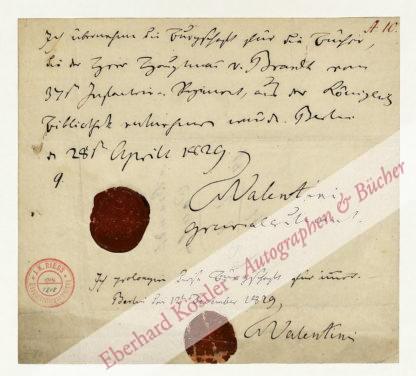 A 10.
Ich übernehme die Bürgschaft für die Bücher,
die der Herr Hauptmann v. Brandt vom
37t Infanterie-Regiment, aus der Königlich
Bibliothek entnehmen würde. Berlin
d 28t April 1829
Valentini
Generallieutenant.
Ich prolongire diese Bürgschaft für
Berlin den 12t December 1829,
Valentini
Eberhard Köstler - Autographen & Bücher